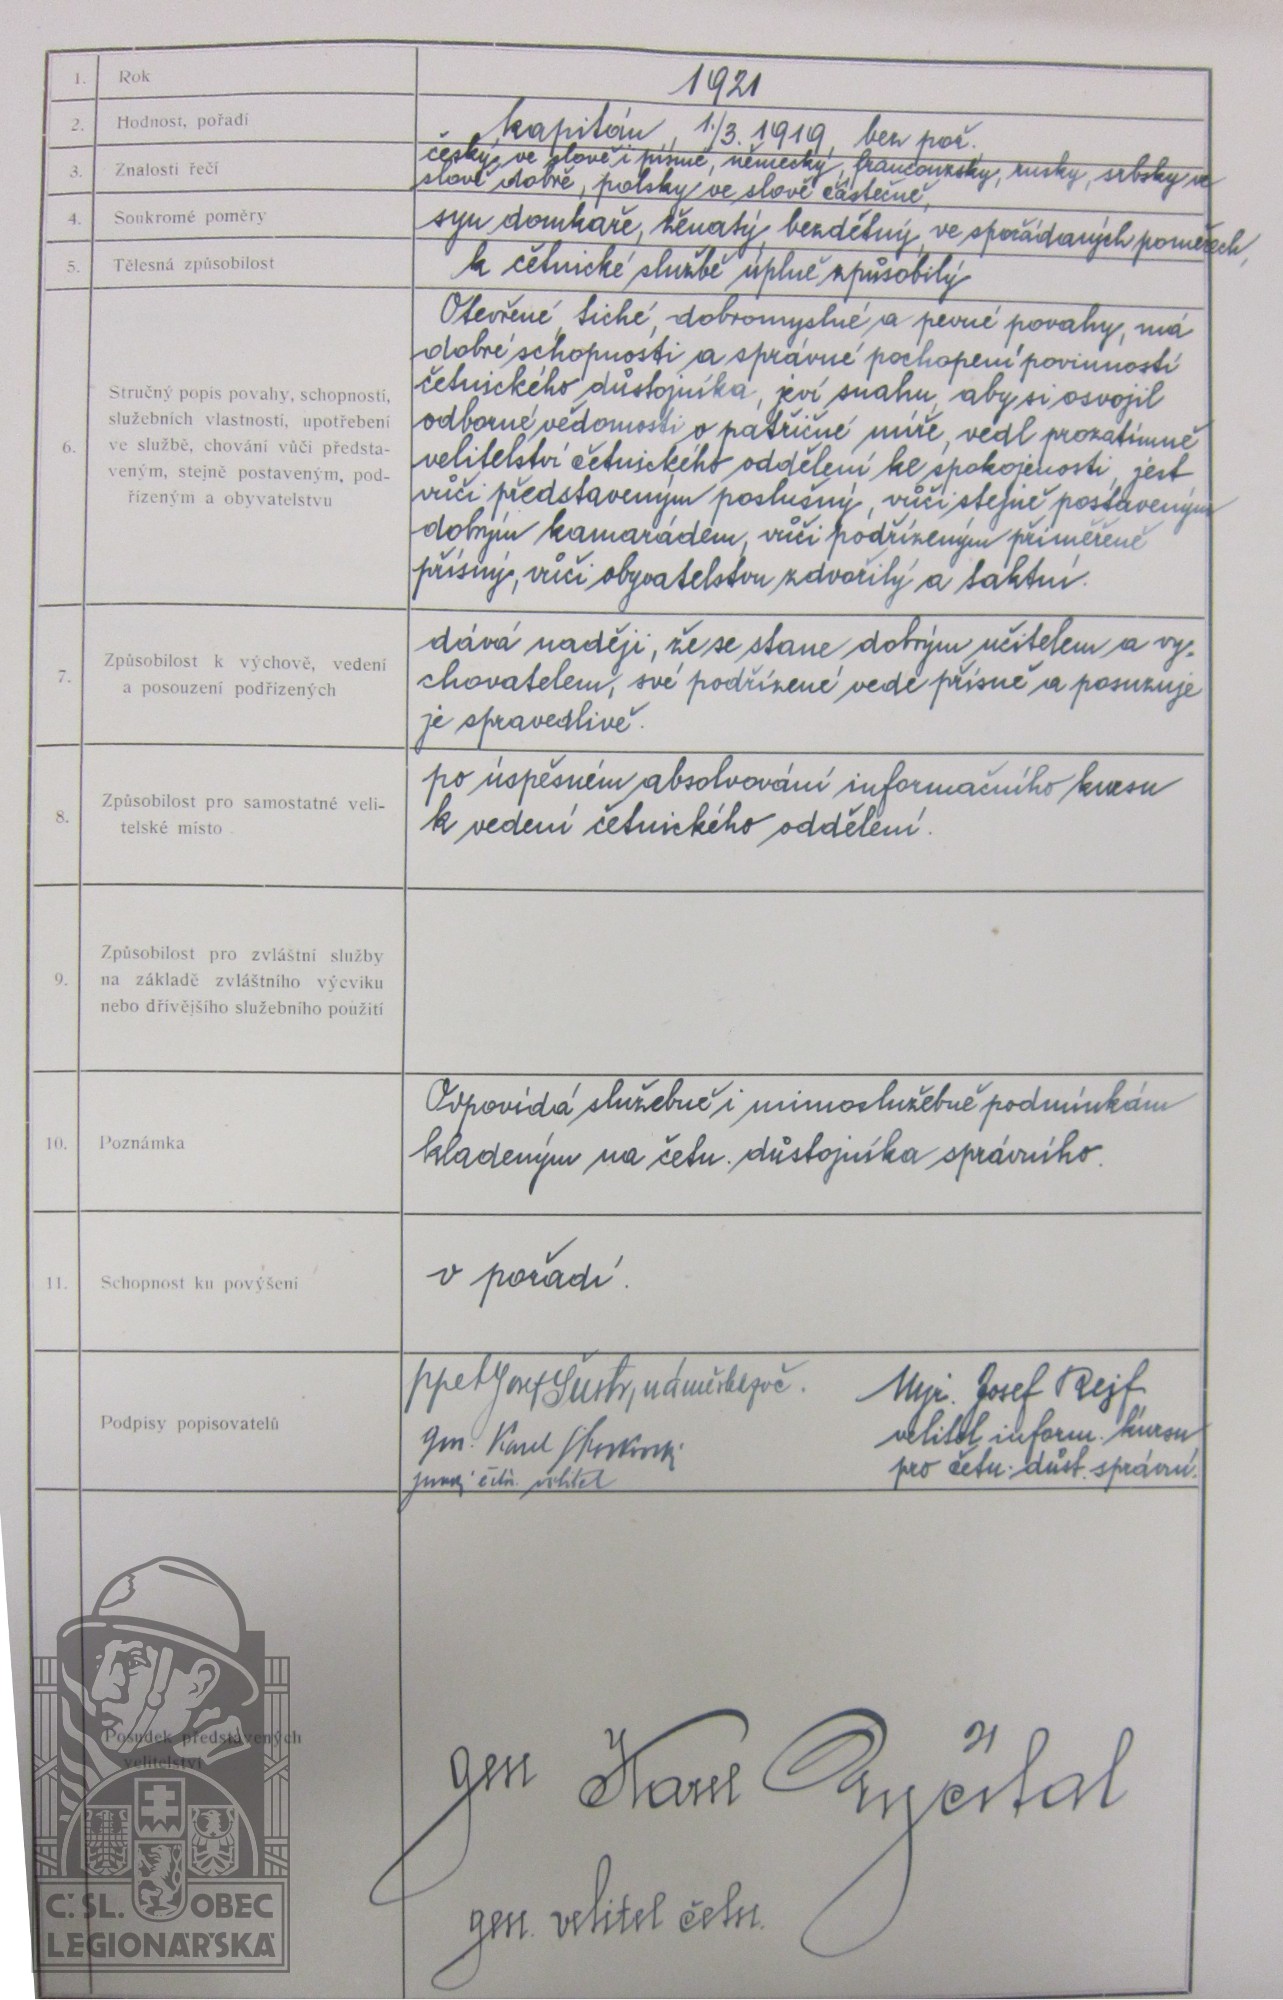 1. Rok 1921
2. Hodnost, pořadí kapitán, 1./3. 1919, bez poř.
3. Znalosti řečí česky ve slově i písmě, německy, francouzsky, rusky, srbsky ve
slově dobře, polsky ve slově částečně,
4. Soukromé poměry syn domkaře, ženatý, bezdětný, ve spořádaných poměrech,
5. Tělesná způsobilost k četnické službě úplně způsobilý
6. Stručný popis povahy, schopností,
služebních vlastností, upotřebení
ve službě, chování vůči představeným,
veným, stejně postaveným, pod-
řízeným a obyvatelstvu
Otevřené, tiché, dobromyslné a pevné povahy, má
dobré schopnosti a správné pochopení povinností
četnického důstojníka, jeví snahu, aby si osvojil
odborné vědomosti o patřičné míře, vedl prozatímně
velitelství četnického oddělení ke spokojenosti, jest
vůči představeným poslušný, vůči stejně postaveným
dobrým kamarádem, vůči podřízeným přiměřeně
přísný, vůči obyvatelstvu zdvořilý a taktní.
7. Způsobilost k výchově, vedení
a posouzení podřízených
dává naději, že se stane dobrým učitelem a vy-
chovatelem, své podřízené vede přísně a posuzuje
je spravedlivě.
8. Způsobilost pro samostatné veli-
telské místo
po úspěsném absolvování informačního kursu
k vedení četnického oddělení.
9. Způsobilost pro zvláštní služby
na základě zvláštního výcviku
nebo dřívějšího služebního použití
10. Poznámka
Odpovídá služebně i mimoslužebně podmínkám
kladeným na četn. důstojníka správního.
11. Schopnost ku povýšení v pořadí.
Podpisy popisovatelů
pplt Josef Šustr,
gen. Karel
četn. velitel
Mjr. Josef Rejf
velitel inform. kursu
pro četn. důst. správní.
Posudek představených
velitelství
gen Karel
gen. velitel četn.
Č. SL. OBEC
LEGIONÁŘSKÁ